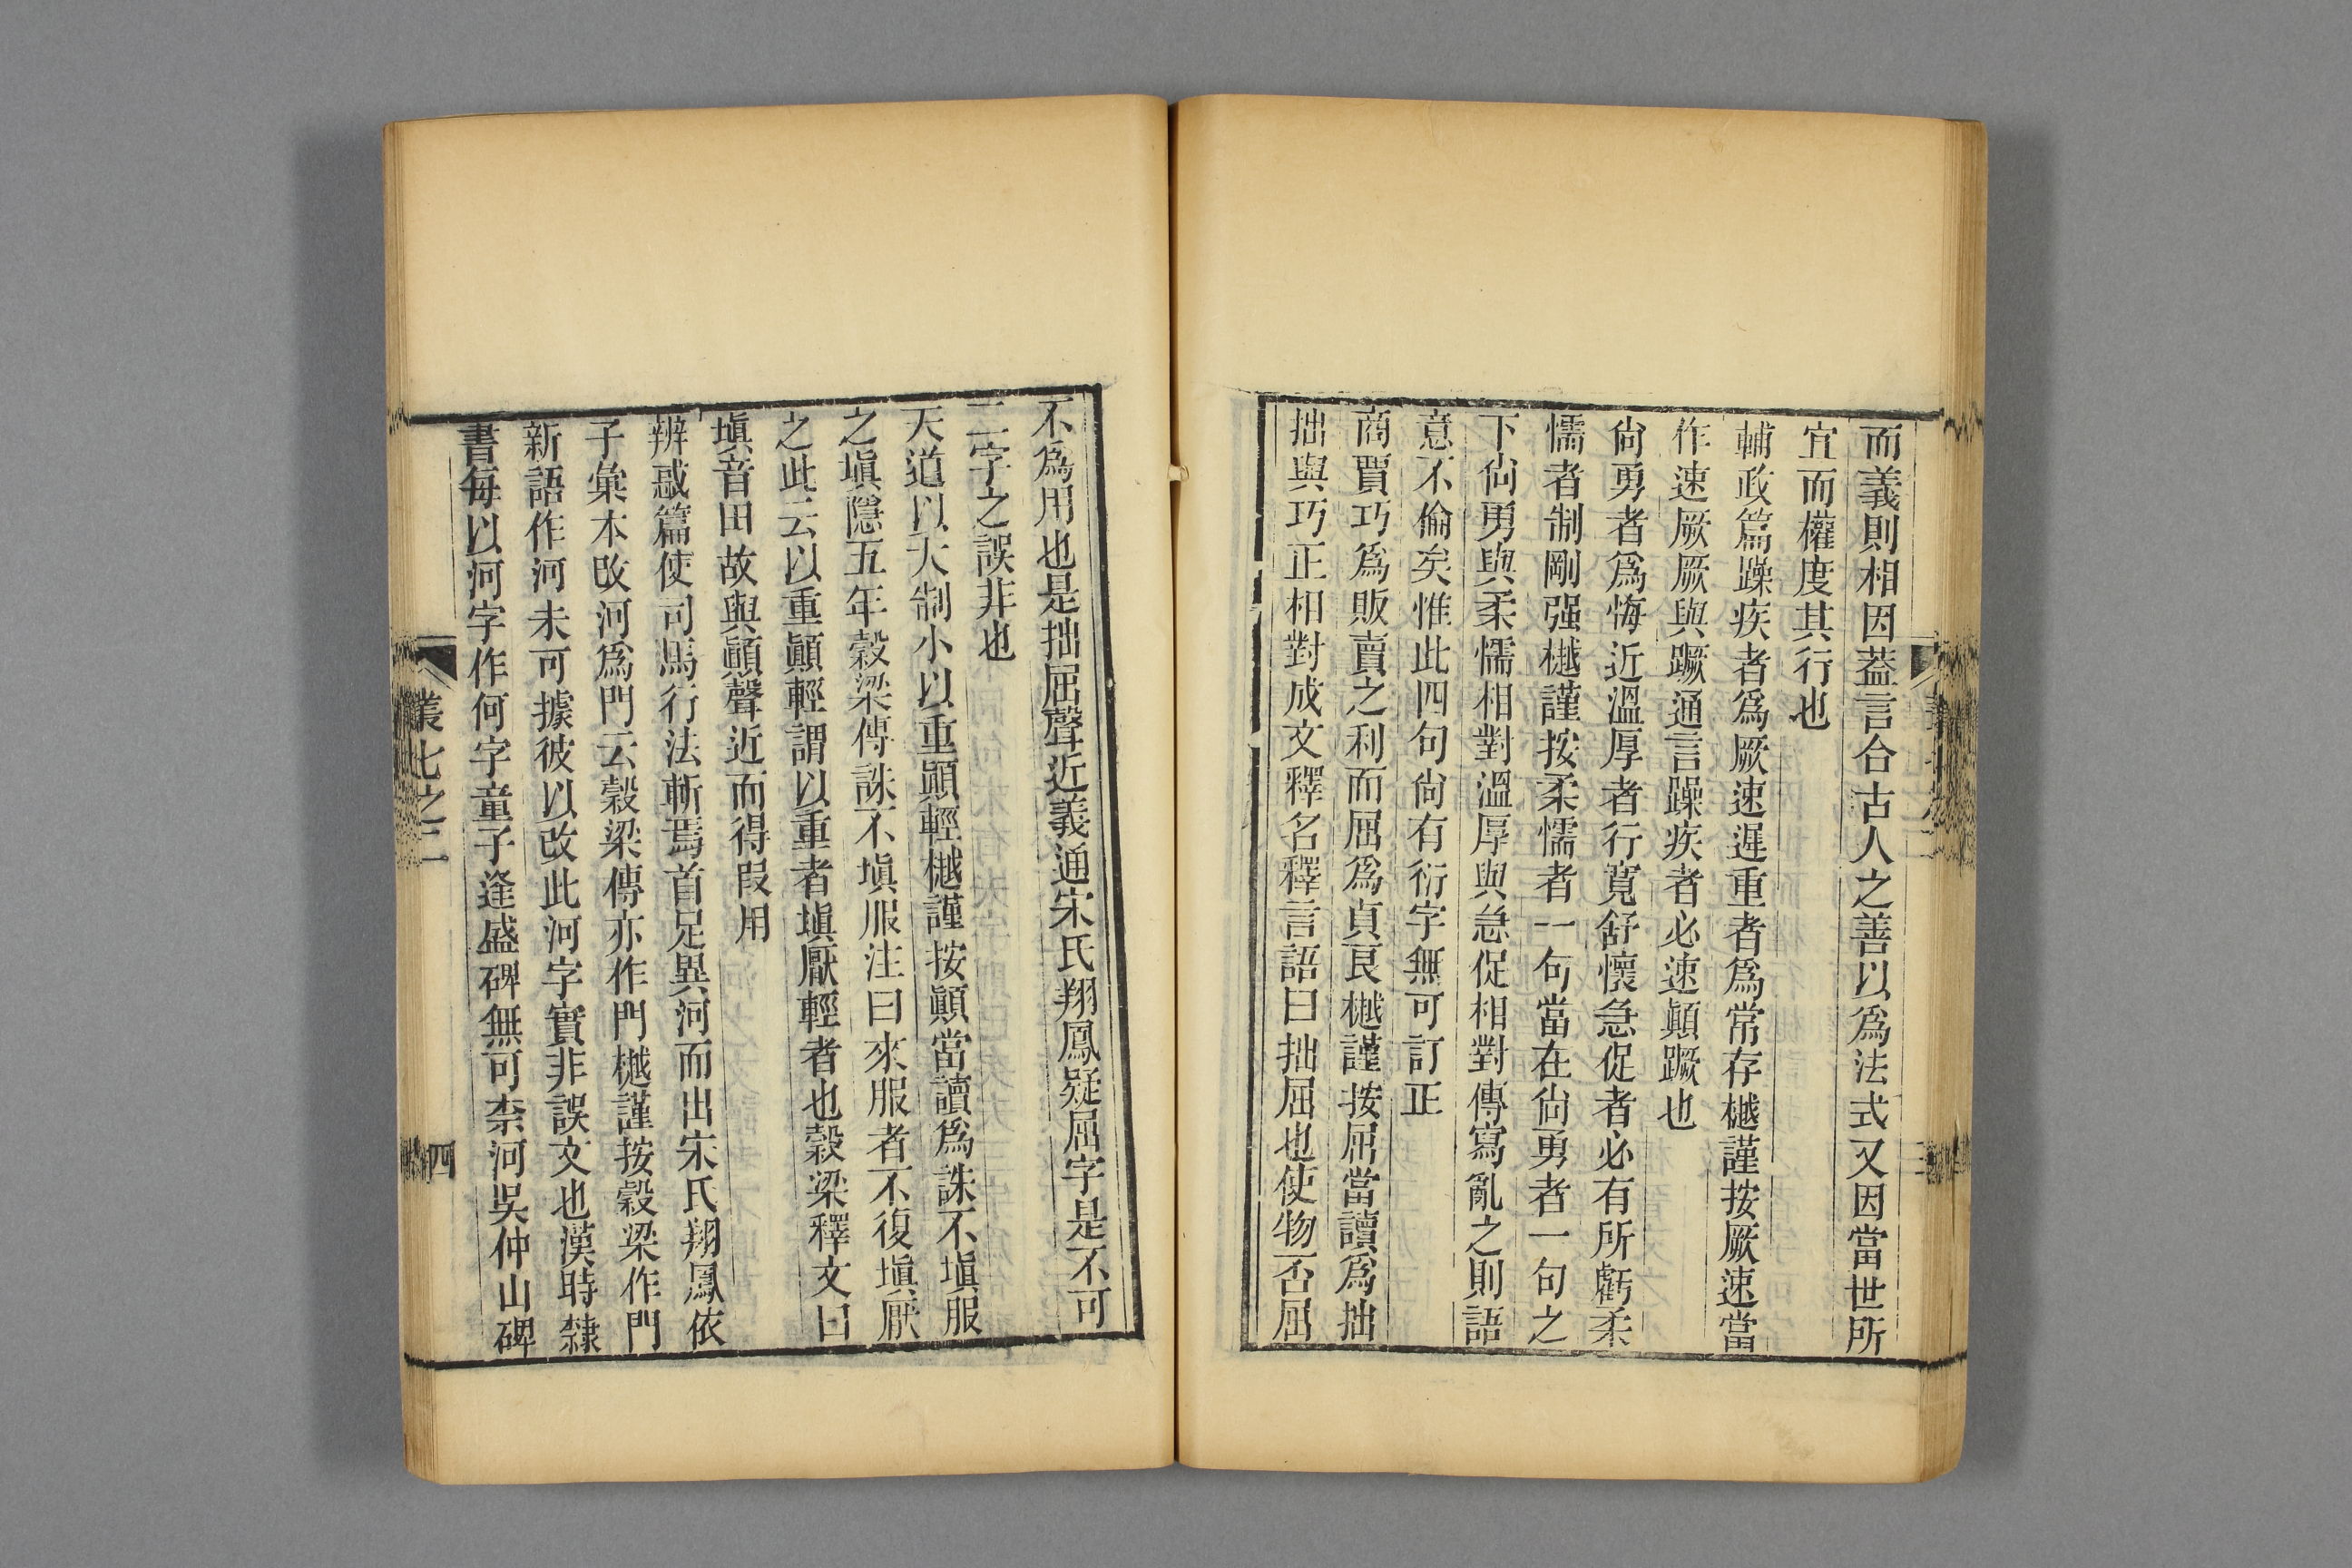 而義則相因葢言合古人之善以爲法式又因當世所
宜而權度其行也
輔政篇躁疾者爲厥速遲重者爲常存樾謹按厥速當
作速厥厥與蹶通言躁疾者必速顚蹶也
尙勇者爲悔近溫厚者行寬舒懷急促者必有所虧柔
懦者制剛强樾謹按柔懦者一句當在尙勇者一句之
下尙勇與柔懦相對溫厚與急促相對傳寫亂之則語
意不倫矣惟此四句尙有衍字無可訂正
商賈巧爲販賣之利而屈爲貞良樾謹按屈當讀爲拙
拙與巧正相對成文釋名釋言語曰拙屈也使物否屈
不爲用也是拙屈聲近義通宋氏翔鳳疑屈字是不可
二字之誤非也
天道以大制小以重顚輕樾謹按顚當讀爲誅不塡服
之塡隱五年穀梁傳誅不塡服注曰來服者不復塡厭
之此云以重顚輕謂以重者塡厭輕者也穀梁釋文曰
塡音田故與顚聲近而得叚用
辨惑篇使司馬行法斬焉首足異河而出宋氏翔鳳依
子彙本改河爲門云穀梁傳亦作門樾謹按穀梁作門
新語作河未可據彼以改此河字實非誤文也漢時隸
書每以河字作何字童子逢盛碑無可柰河吳仲山碑
叢七之二
四